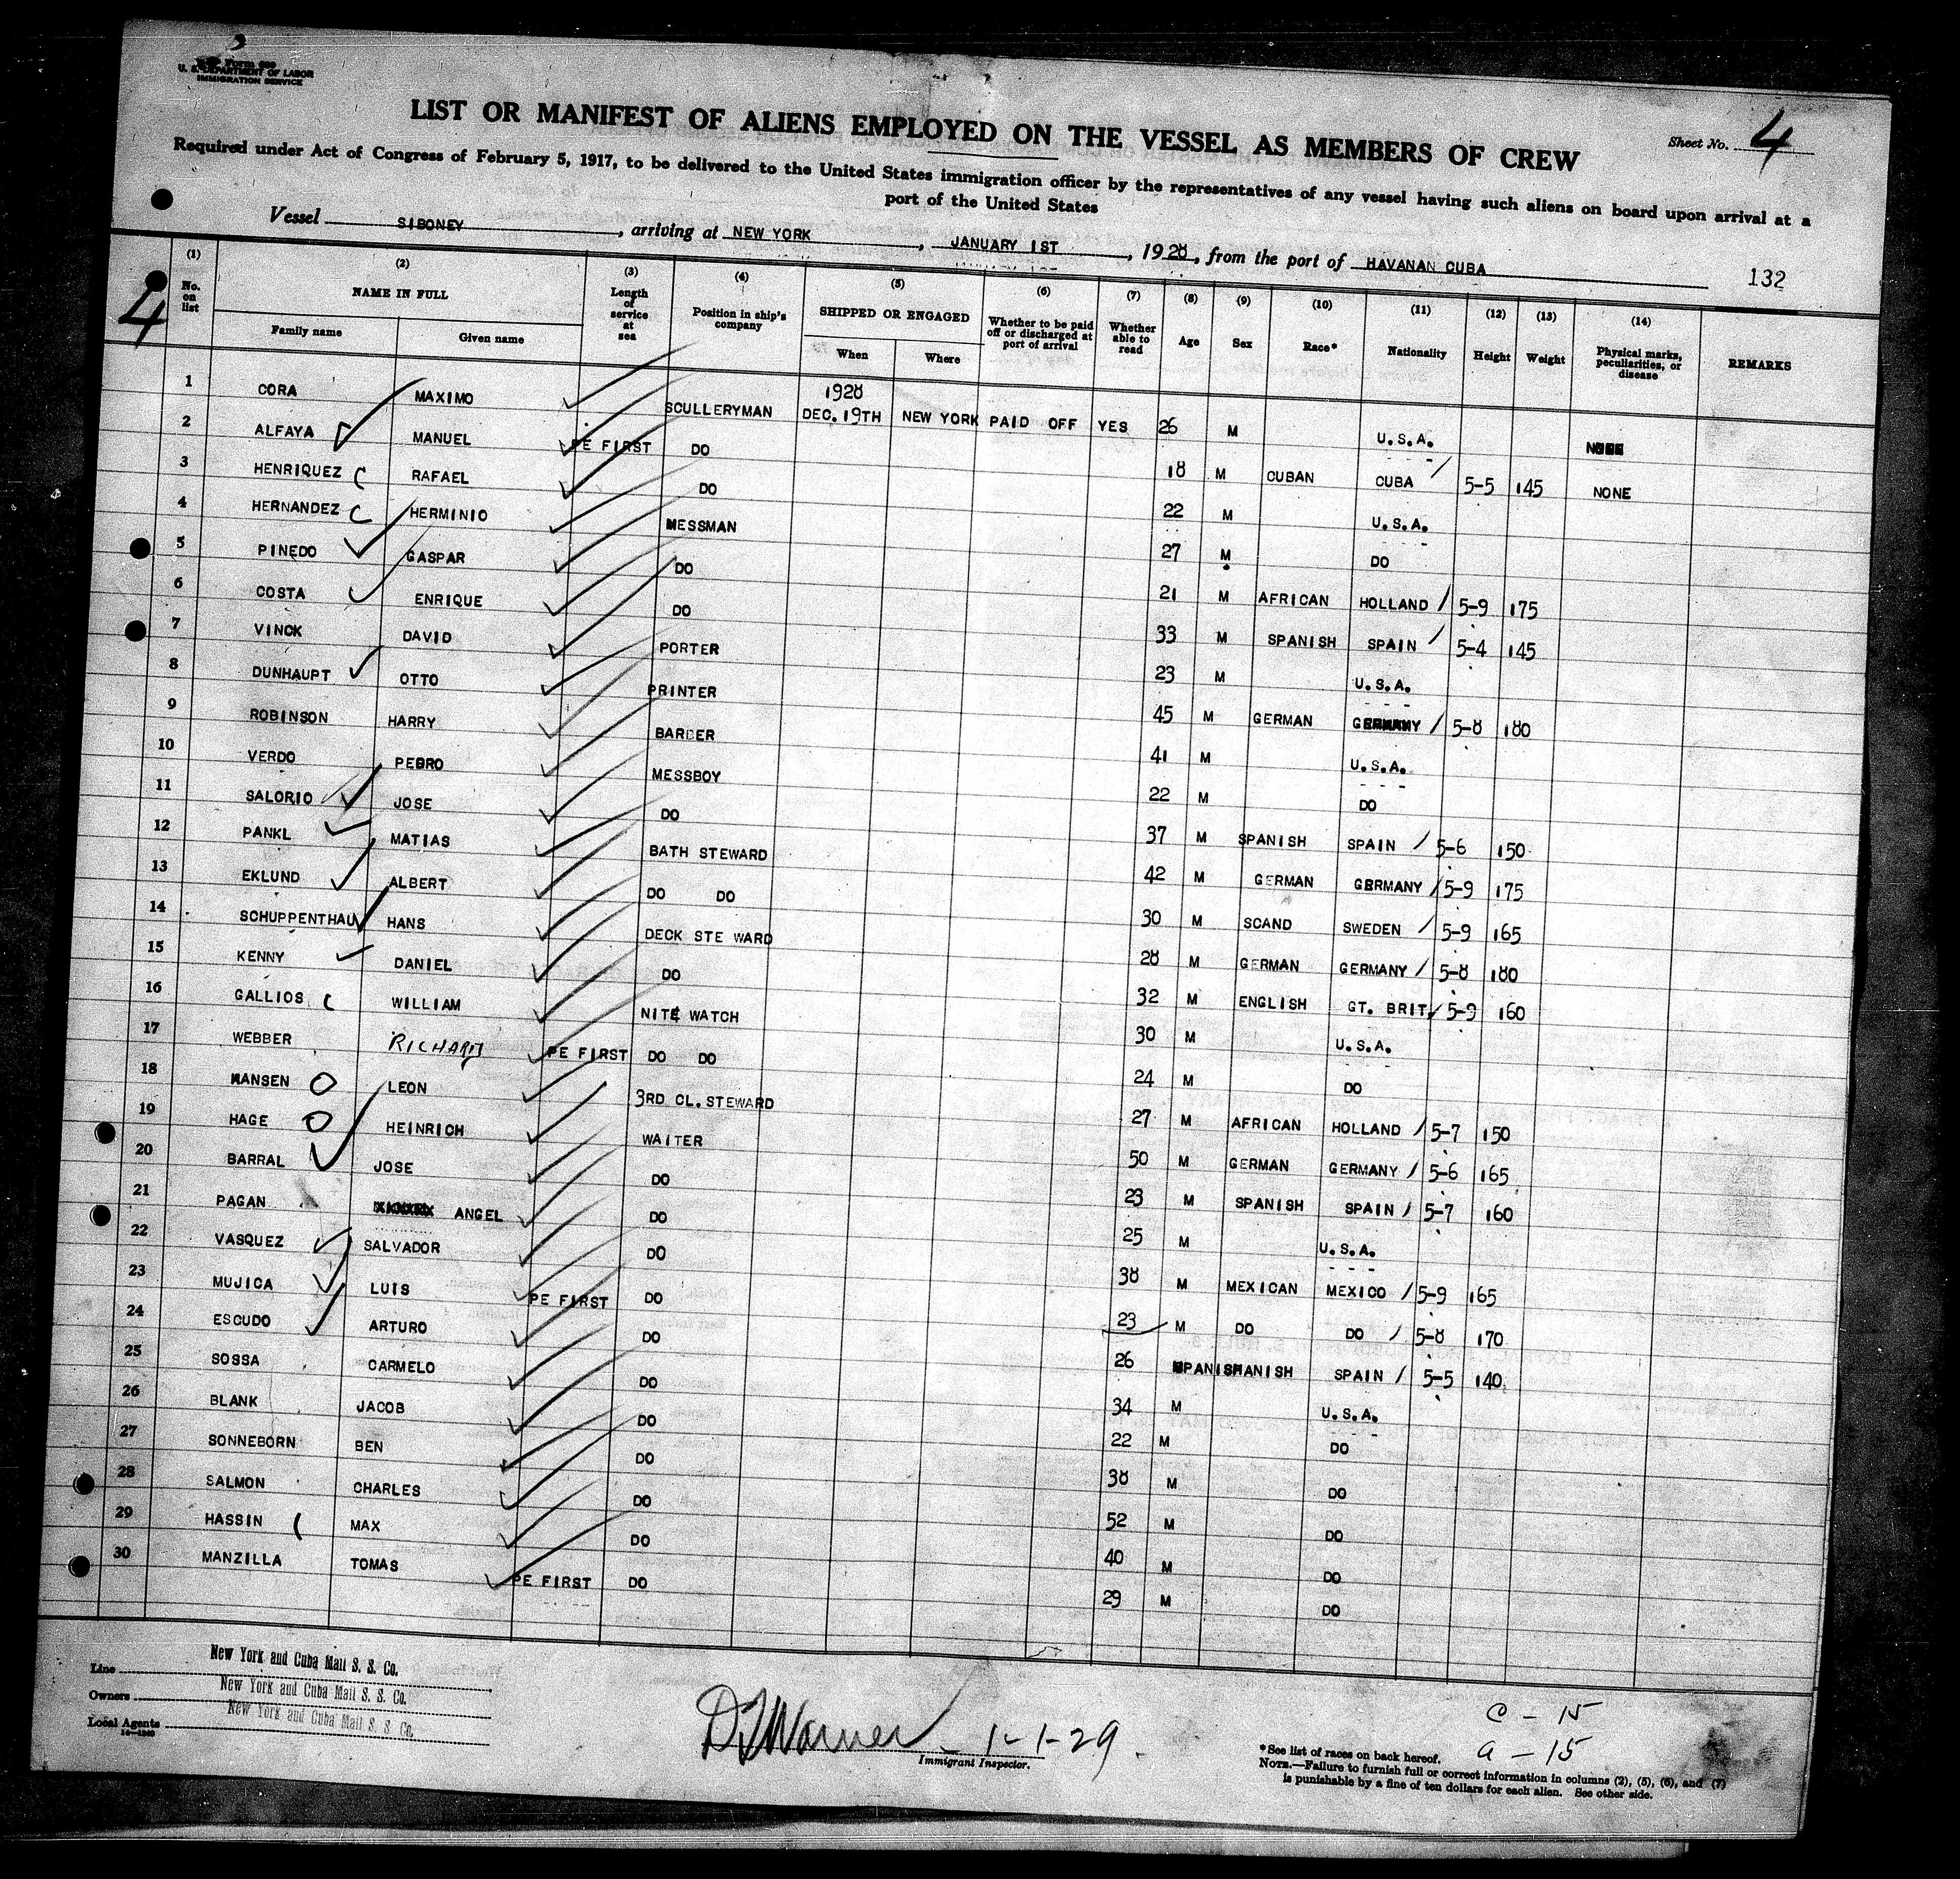 Form 689
U. S. DEPARTMENT OF LABOR
IMMIGRATION SERVICE
LIST OR MANIFEST OF ALIENS EMPLOYED ON THE VESSEL AS MEMBERS OF CREW
Sheet No. 4
Required under Act of Congress of February 5, 1917, to be delivered to the United States immigration officer by the representatives of any vessel having such aliens on board upon arrival at a
port of the United States
Vessel SIBONEY, arriving at NEW YORK, JANUARY 1ST, 1928, from the port of HAVANAN CUBA
132
4
(1) No. on list (2) NAME IN FULL Family name Given name (3) Length of service at sea (4) Position in ship's company (5) SHIPPED OR ENGAGED When Where (6) Whether to be paid off or discharged at port of arrival (7) Whether able to read (8) Age (9) Sex (10) Race* (11) Nationality (12) Height (13) Weight (14) Physical marks, peculiarities, or disease REMARKS
1 CORA MAXIMO SCULLERYMAN 1928 DEC. 19TH NEW YORK PAID OFF YES 26 M U.S.A.
2 ALFAYA MANUEL PE FIRST DO 18 M CUBAN CUBA 5-5 145 NONE
3 HENRIQUEZ RAFAEL DO 22 M U.S.A.
4 HERNANDEZ HERMINIO MESSMAN 27 M DO
5 PINEDO GASPAR DO 21 M AFRICAN HOLLAND 5-9 175
6 COSTA ENRIQUE DO 33 M SPANISH SPAIN 5-4 145
7 VINCK DAVID PORTER 23 M U.S.A.
8 DUNHAUPT OTTO PRINTER 45 M GERMAN GERMANY 5-8 180
9 ROBINSON HARRY BARBER 41 M U.S.A.
10 VERDO PEDRO MESSBOY 22 M DO
11 SALORIO JOSE DO 37 M SPANISH SPAIN 5-6 150
12 PANKL MATIAS BATH STEWARD 42 M GERMAN GERMANY 5-9 175
13 EKLUND ALBERT DO DO 30 M SCAND SWEDEN 5-9 165
14 SCHUPPENTHAU HANS DECK STE WARD 28 M GERMAN GERMANY 5-8 180
15 KENNY DANIEL DO 32 M ENGLISH GT. BRIT 5-9 160
16 GALLIOS WILLIAM NITE WATCH 30 M U.S.A.
17 WEBBER RICHARD PE FIRST DO DO 24 M DO
18 HANSEN LEON 3RD CL. STEWARD 27 M AFRICAN HOLLAND 5-7 150
19 HAGE HEINRICH WAITER 50 M GERMAN GERMANY 5-6 165
20 BARRAL JOSE DO 23 M SPANISH SPAIN 5-7 160
21 PAGAN ANGEL DO 25 M U.S.A.
22 VASQUEZ SALVADOR DO 38 M MEXICAN MEXICO 5-9 165
23 MUJICA LUIS PE FIRST DO 23 M DO DO 5-8 170
24 ESCUDO ARTURO DO 26 SPANISH SPAIN 5-5 140
25 SOSSA CARMELO DO 34 M U.S.A.
26 BLANK JACOB DO 22 M DO
27 SONNEBORN BEN DO 38 M DO
28 SALMON CHARLES DO 52 M DO
29 HASSIN MAX DO 40 M DO
30 MANZILLA TOMAS PE FIRST DO 29 M DO
Line New York and Cuba Mail S. S. Co.
Owners New York and Cuba Mail S. S. Co.
Local Agents New York and Cuba Mail S. S. Co.
14—1240
Warner 1-1-29.
Immigrant Inspector.
C - 15
a - 15
*See list of races on back hereof.
NOTE.—Failure to furnish full or correct information in columns (2), (5), (6), and (7)
is punishable by a fine of ten dollars for each alien. See other side.